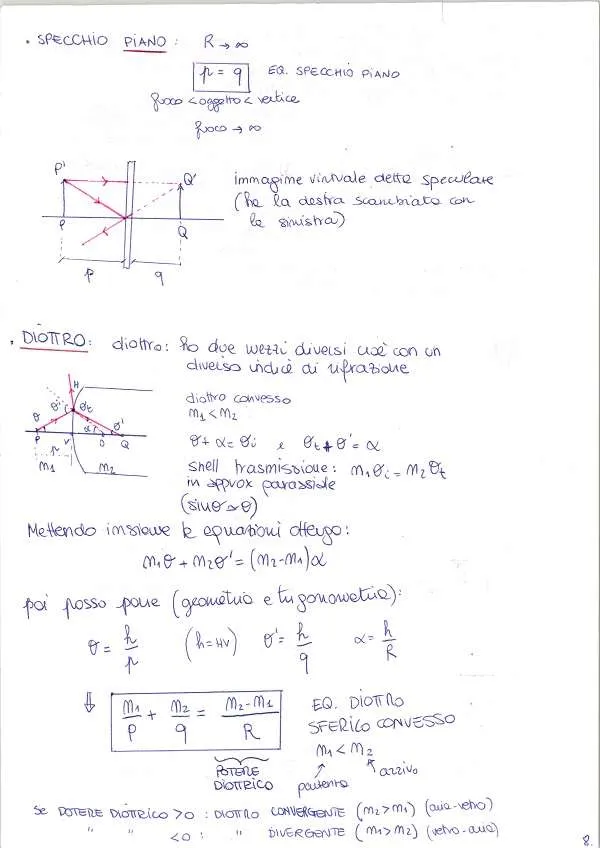 . SPECCHIO PIANO : R → ∞
p = q EQ. SPECCHIO PIANO
fuoco < oggetto < vertice
fuoco → ∞
P' Q'
immagine virtuale detta speculare
(ha la destra scambiata con
la sinistra)
P Q
p q
. DIOTTRO: diottro: ho due mezzi diversi cioè con un
diverso indice di rifrazione
H
diottro convesso
n1 < n2
θ θi C θt α r θ'
P V O Q
p
n1 n2
θ + α = θi e θt + θ' = α
Snell trasmissione: n1 θi = n2 θt
in approx parassiale
(sinθ ≃ θ)
Mettendo insieme le equazioni ottengo:
n1θ + n2θ' = (n2-n1)α
poi posso porre (geometria e trigonometria):
θ = h/p (h = HV) θ' = h/q α = h/R
⇓ n1/p + n2/q = n2-n1/R EQ. DIOTTRO
SFERICO CONVESSO
n1 < n2
POTERE
DIOTTRICO
partenza arrivo
Se POTERE DIOTTRICO >0 : DIOTTRO CONVERGENTE (n2>n1) (aria-vetro)
" " <0 : " DIVERGENTE (n1>n2) (vetro-aria)
8.